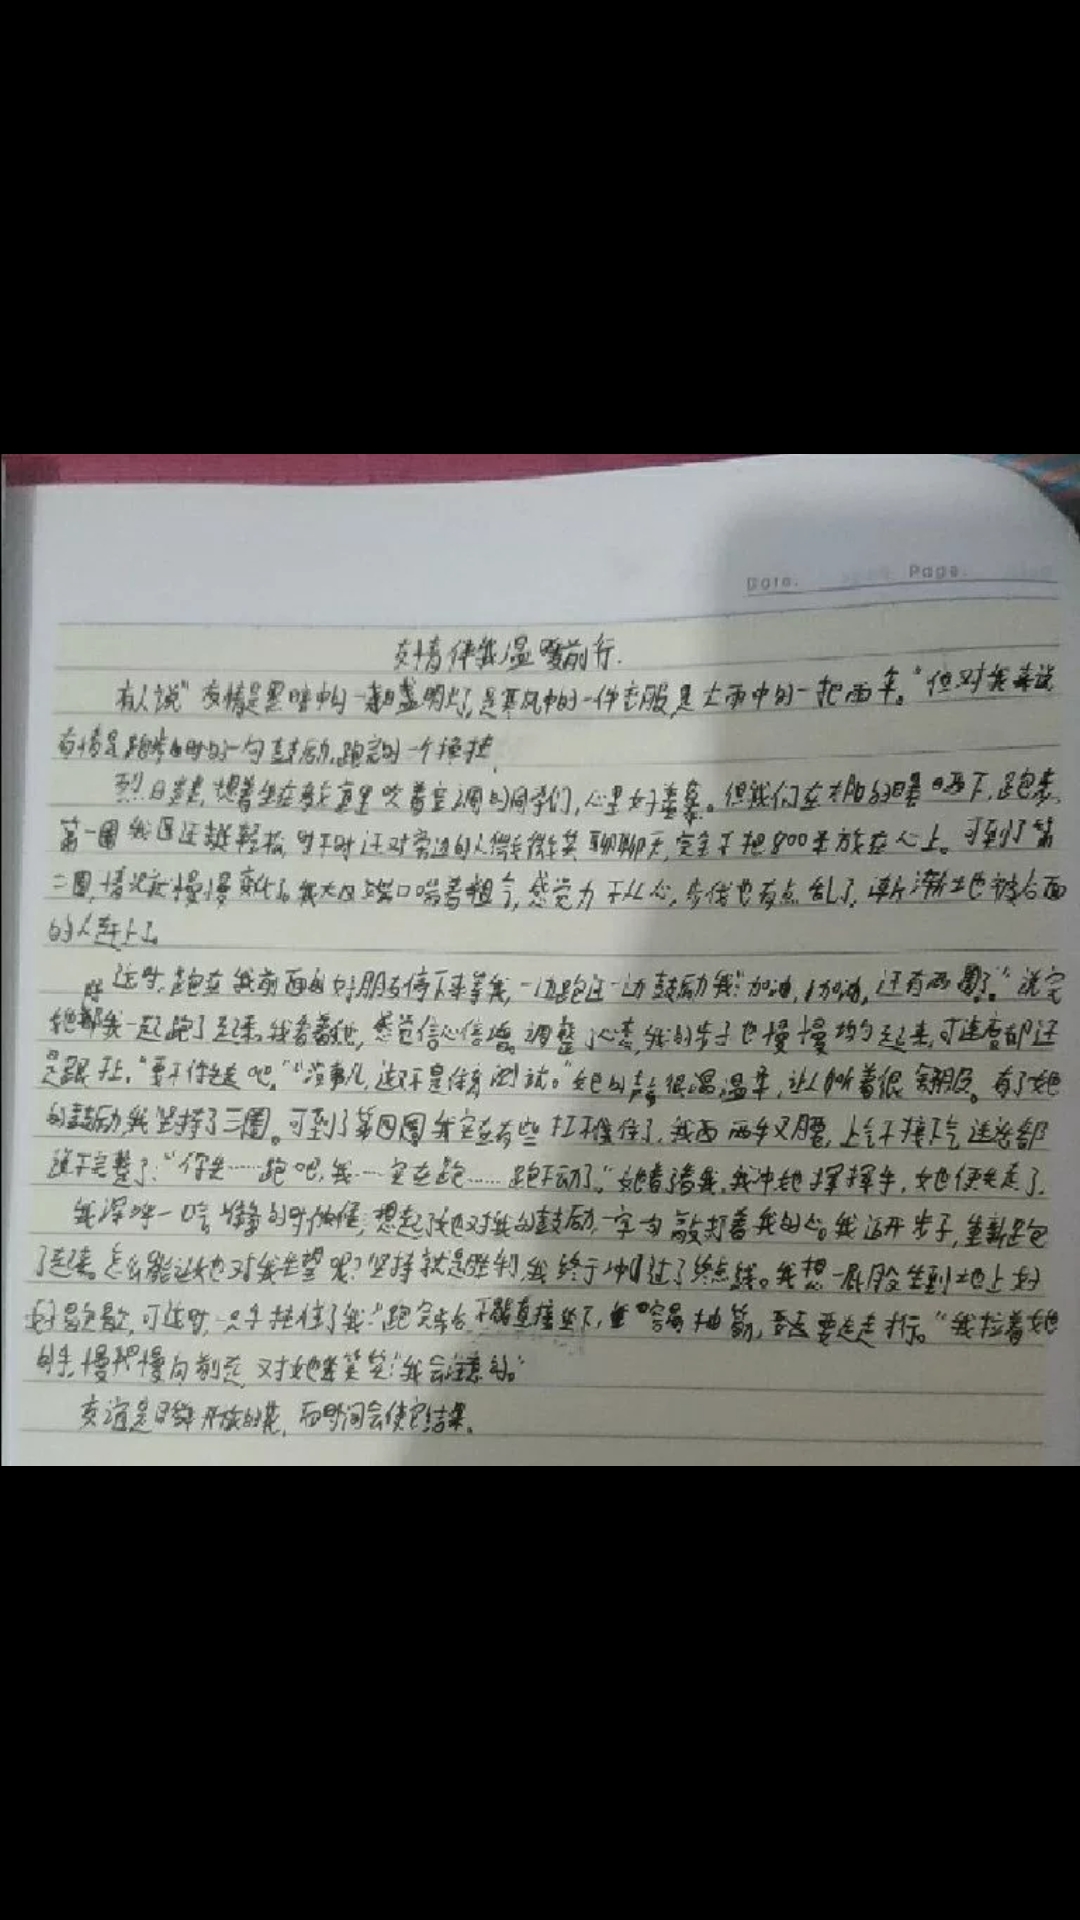 Date. Page.
友情伴我温暖前行.
有人说"友情是黑暗中的一盏明灯,是寒风中的一件衣服,是大雨中的一把雨伞。"但对我来说
友情是跑步时的一句鼓励,跑完的一个搀扶.
烈日炎炎,想着坐在教室里吹着空调的同学们,心里好羡慕。但我们在太阳的曝晒下,跑步.
第一圈我还挺轻松,时不时还对旁边的人微微笑聊聊天,完全不把800米放在心上。可到了第
二圈,情况就慢慢变化了。我大口喘着粗气,感觉力不从心,步伐也有点乱了,渐渐地被后面
的人赶上了。
这时,跑在我前面的好朋友停下来等我,一边跑还一边鼓励我:"加油,加油,还有两圈了。"说完
她陪我一起跑了起来。我看着她,感觉信心倍增,调整了心态,我的步子也慢慢均匀起来,可速度却还
是跟不上,"要不你先走吧。""没事儿,这又不是体育测试。"她的声音很温柔,让人听着很舒服。有了她
的鼓励,我坚持了三圈。可到了第四圈我实在有些扛不住了,我两手叉腰,上气不接下气连话都
说不完整了:"你先……跑吧,我……实在跑……跑不动了。"她看了看我,我冲她挥挥手,她便先走了.
我深呼一口气准备的时候,想起了她对我的鼓励,一字一句敲打着我的心。我迈开步子,重新跑
了起来。怎么能让她对我失望呢?坚持就是胜利,我终于冲过了终点线。我想一屁股坐到地上好
好歇歇,可这时,一只手扶住了我:"跑完步后不能直接坐下,容易抽筋,要走走才行。"我拉着她
的手,慢慢向前走,又对她笑笑:"我会注意的。"
友谊是日鲜开放的花,而时间会使它结果。